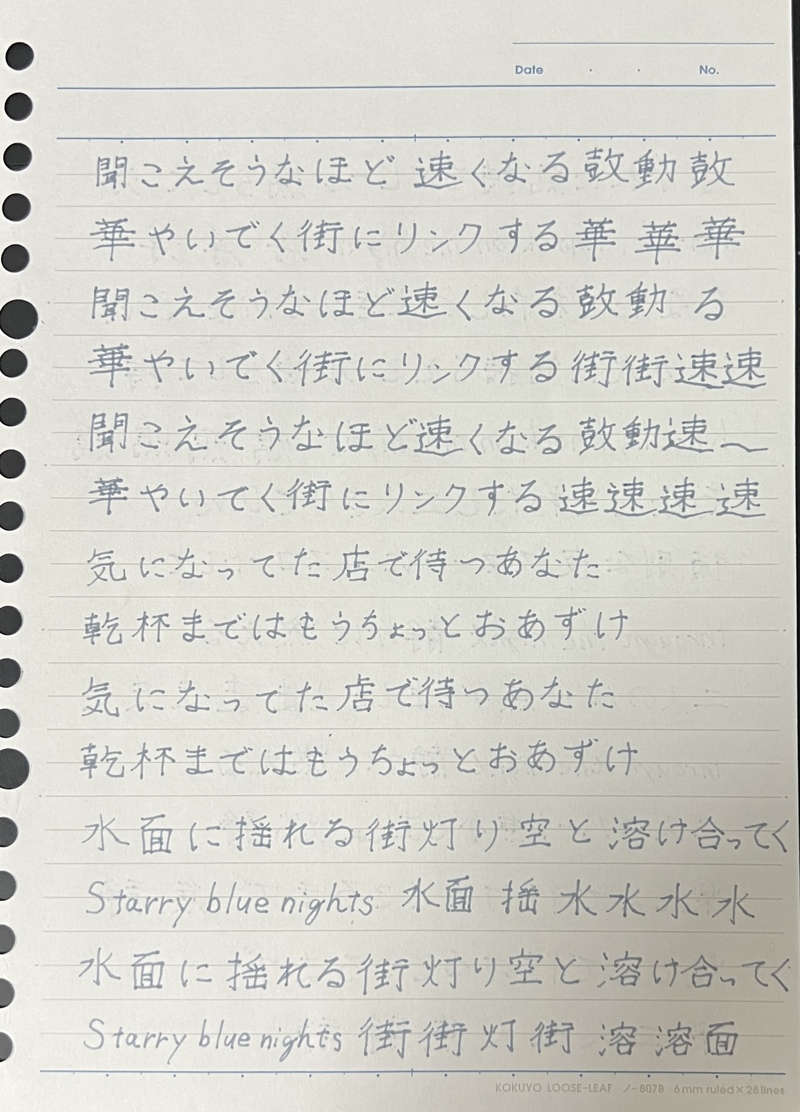 Date ・ ・ No.
聞こえそうなほど 速くなる鼓動 鼓
華やいでく街にリンクする華 華 華
聞こえそうなほど速くなる鼓動 る
華やいでく街にリンクする街街速速
聞こえそうなほど速くなる鼓動速
華やいでく街にリンクする速速速速
気になってた店で待つあなた
乾杯まではもうちょっとおあずけ
気になってた店で待つあなた
乾杯まではもうちょっとおあずけ
水面に揺れる街灯り空と溶け合ってく
Starry blue nights 水面 揺 水 水 水 水
水面に揺れる街灯り空と溶け合ってく
Starry blue nights 街街灯街 溶溶面
KOKUYO LOOSE-LEAF ノ-807B 6mm ruled×28lines